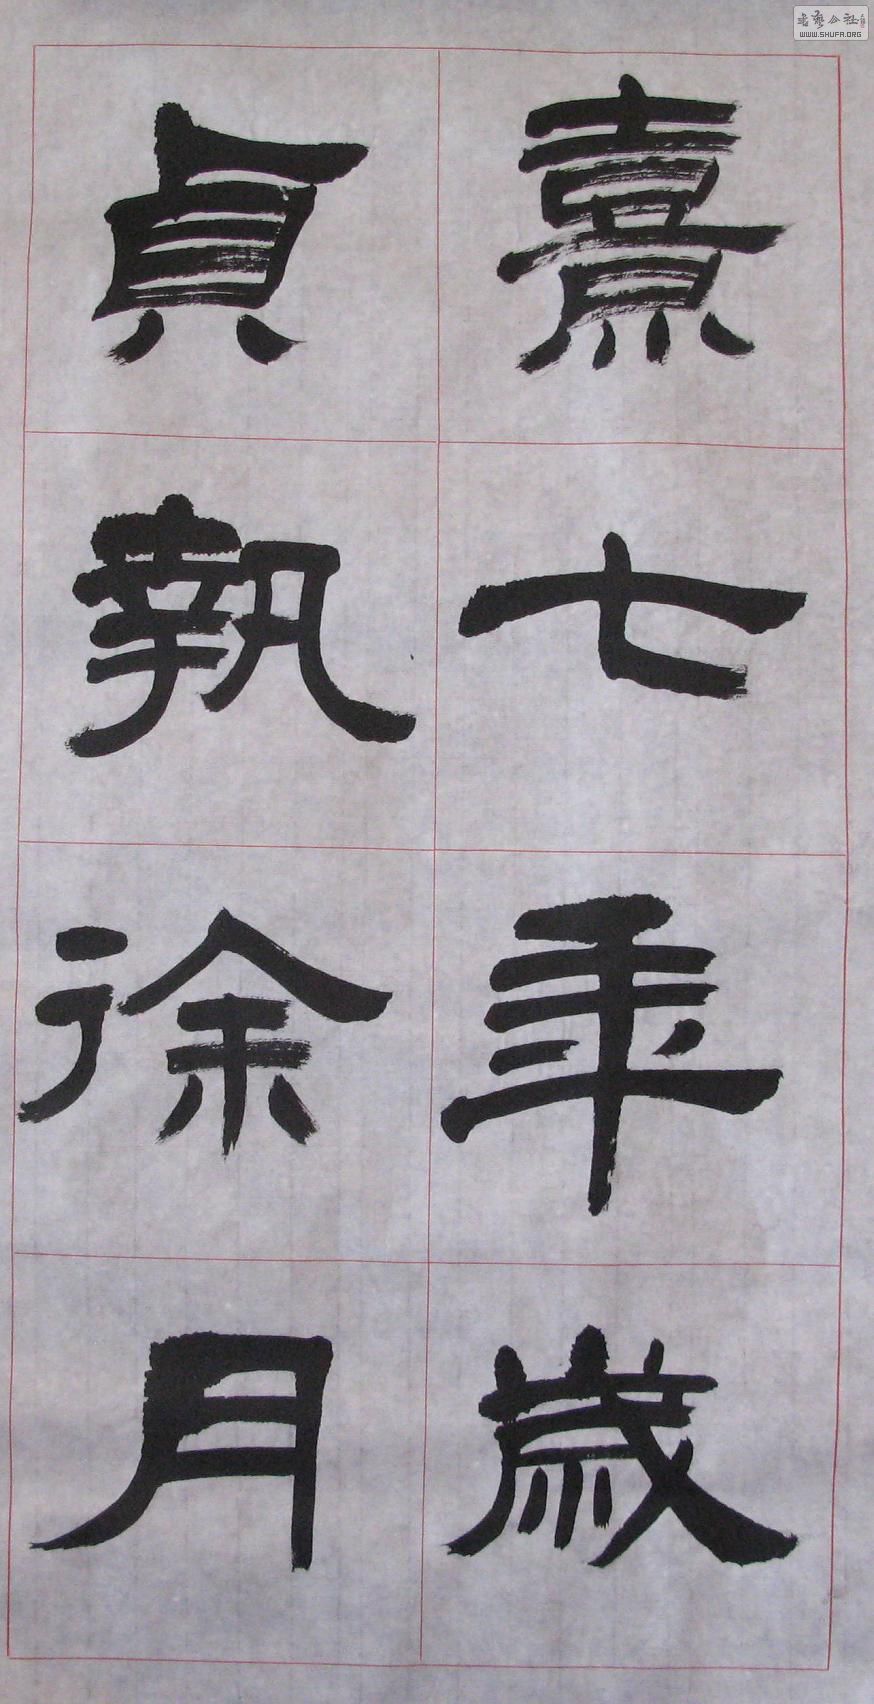 書藝公社
WWW.SHUFA.ORG
熹七年歲
貞執徐月